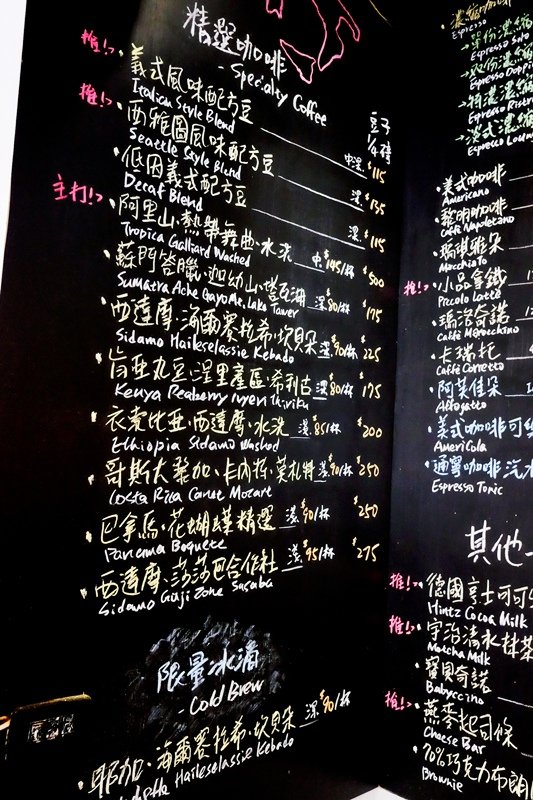 精選咖啡
- Specialty Coffee
豆子
1/4磅
推!> ·義式風味配方豆 中深 $115
Italian Style Blend
推!> ·西雅圖風味配方豆 深 $135
Seattle Style Blend
·低因義式配方豆 深 $115
Decaf Blend
主打!> ·阿里山·熱帶舞曲·水洗 中 $145/杯 $500
Tropica Galliard Washed
·蘇門答臘·迦幼山·塔瓦湖 深 $80/杯 $175
Sumatra Ache GayoMt. Lake Tawer
·西達摩·海爾賽拉希·坎貝朵 淺 $90/杯 $225
Sidamo Haileselassie Kebado
·肯亞丸豆·涅里產區·希利古 淺 $80/杯 $175
Kenya Peaberry Nyeri Thiriku
·衣索比亞·西達摩·水洗 淺 $85/杯 $200
Ethiopia Sidamo Washed
·哥斯大黎加·卡內特·莫札特 淺 $90/杯 $250
Costa Rica Canet Mozart
·巴拿馬·花蝴蝶精選 淺 $90/杯 $250
Panema Boquete
·西達摩·莎莎巴合作社 淺 $95/杯 $275
Sidamo Guji Zone Sasaba
限量冰滴
- Cold Brew
·耶加·海爾賽拉希·坎貝朵 深 $90/杯
Haileselassie Kebado
·濃縮咖啡
Espresso
→單份濃縮
Espresso Solo
→双份濃縮
Espresso Doppi
→特濃濃縮
Espresso Ristr
→淡式濃縮
Espresso Loun
·美式咖啡
Americano
·黎明咖啡
Caffé Napoletano
·瑪琪雅朵
Macchiato
推!> ·小品拿鐵
Piccolo Latté
·瑪洛奇諾
Caffé Marocchino
·卡瑞托
Caffé Corretto
·阿芙佳朵
Affogatto
·美式咖啡可
AmeriCola
·通寧咖啡汽水
Espresso Tonic
其他
推!> ·德國亨士可可
Hintz Cocoa Milk
推!> ·宇治清水抹茶
Matcha Milk
·寶貝奇諾
Babyccino
推!> ·燕麥起司條
Cheese Bar
·70%巧克力布朗
Brownie